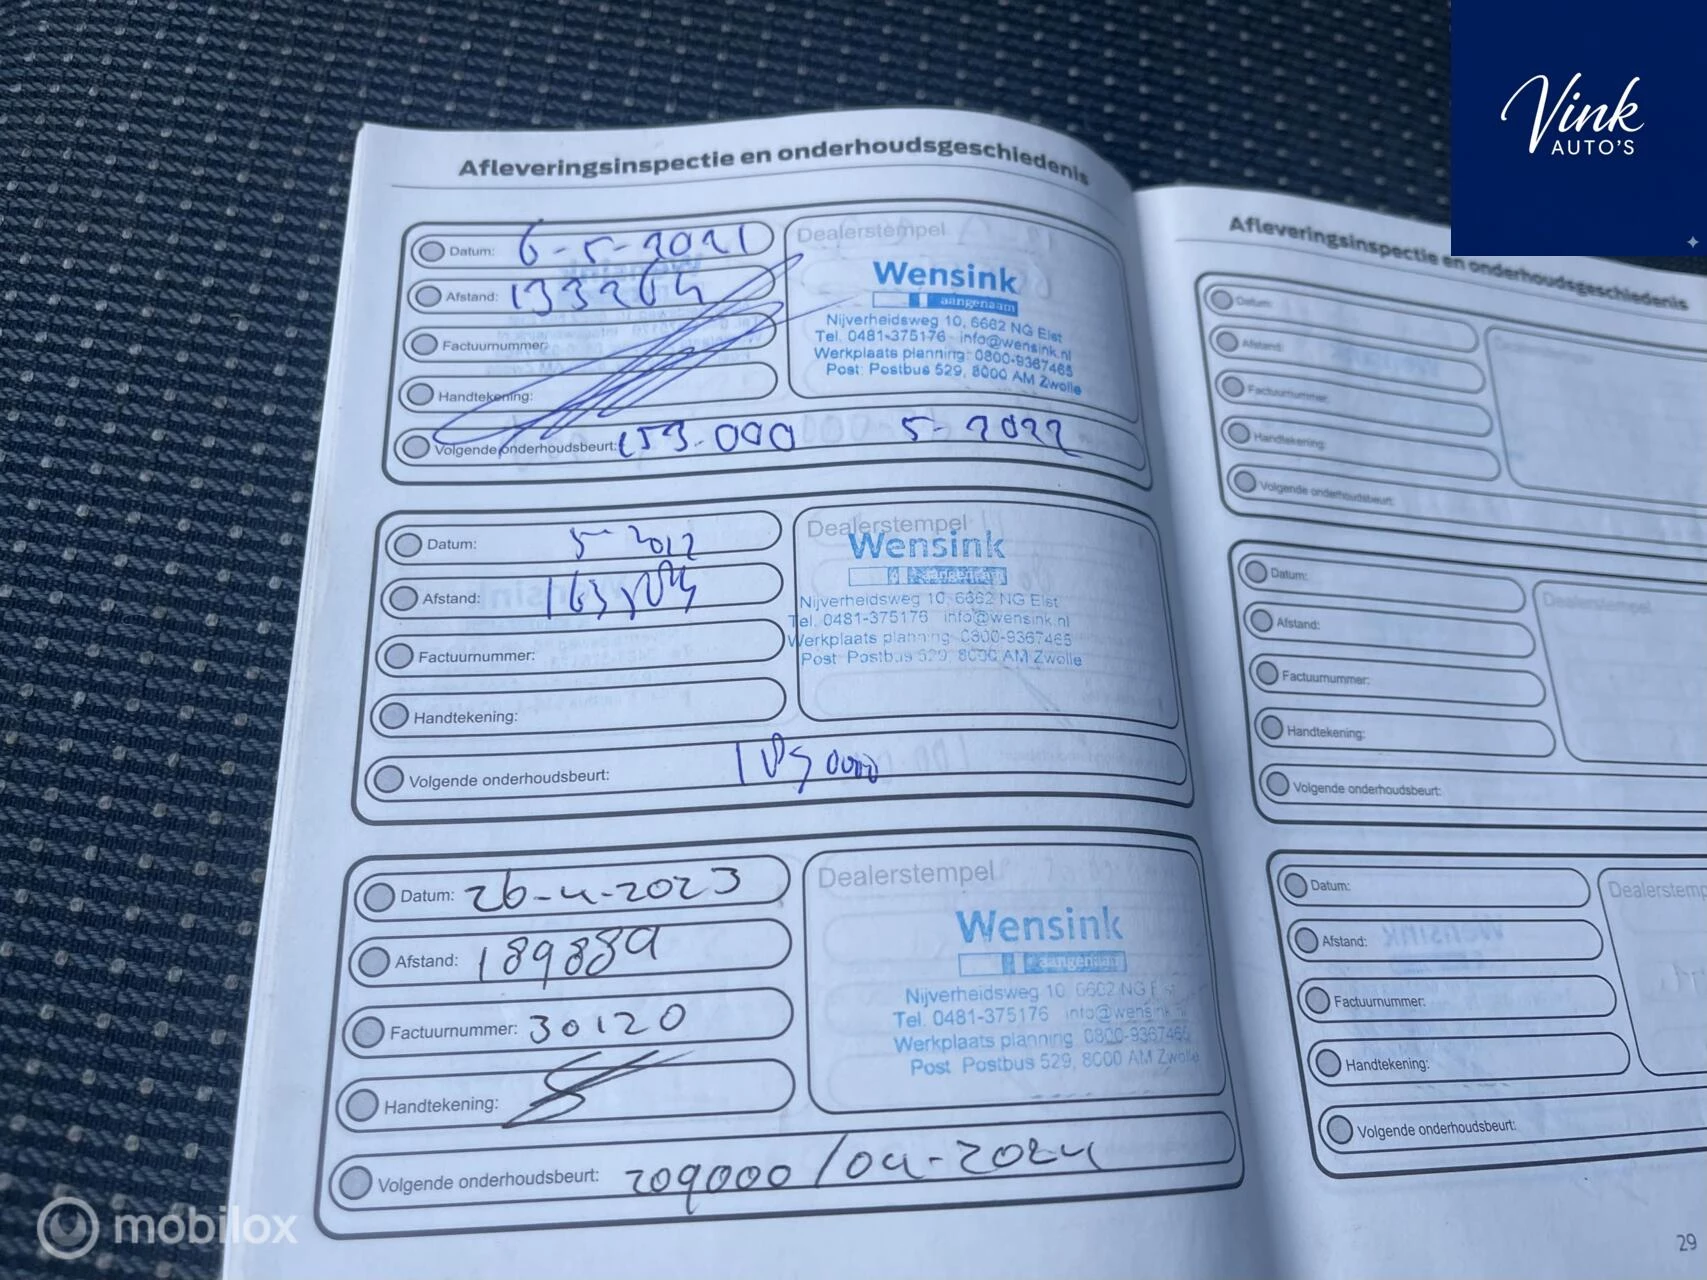 Vink
AUTO'S
Afleveringsinspectie en onderhoudsgeschiedenis
Datum: 6-5-2021
Afstand: 133264
Factuurnummer:
Handtekening:
Volgende onderhoudsbeurt: 153.000 5-2022
Dealerstempel
Wensink
aangenaam
Nijverheidsweg 10, 6662 NG Elst
Tel. 0481-375176 - info@wensink.nl
Werkplaats planning: 0800-9367465
Post: Postbus 529, 8000 AM Zwolle
Datum:
Afstand:
Factuurnummer:
Handtekening:
Volgende onderhoudsbeurt:
Dealerstempel
Wensink
aangenaam
Nijverheidsweg 10, 6662 NG Elst
Tel. 0481-375176 info@wensink.nl
Werkplaats planning 0800-9367465
Post Postbus 529, 8000 AM Zwolle
Datum: 26-4-2023
Afstand: 189889
Factuurnummer: 30120
Handtekening:
Volgende onderhoudsbeurt: 209000/04-2024
Dealerstempel
Wensink
aangenaam
Nijverheidsweg 10, 6662 NG Elst
Tel. 0481-375176 info@wensink.nl
Werkplaats planning 0800-9367465
Post Postbus 529, 8000 AM Zwolle
Afleveringsinspectie en onderhoudsgeschiedenis
Datum:
Afstand:
Factuurnummer:
Handtekening:
Volgende onderhoudsbeurt:
Datum:
Afstand:
Factuurnummer:
Handtekening:
Volgende onderhoudsbeurt:
Dealerstempel
Datum:
Afstand:
Factuurnummer:
Handtekening:
Volgende onderhoudsbeurt:
Dealerstemp
29
mobilox